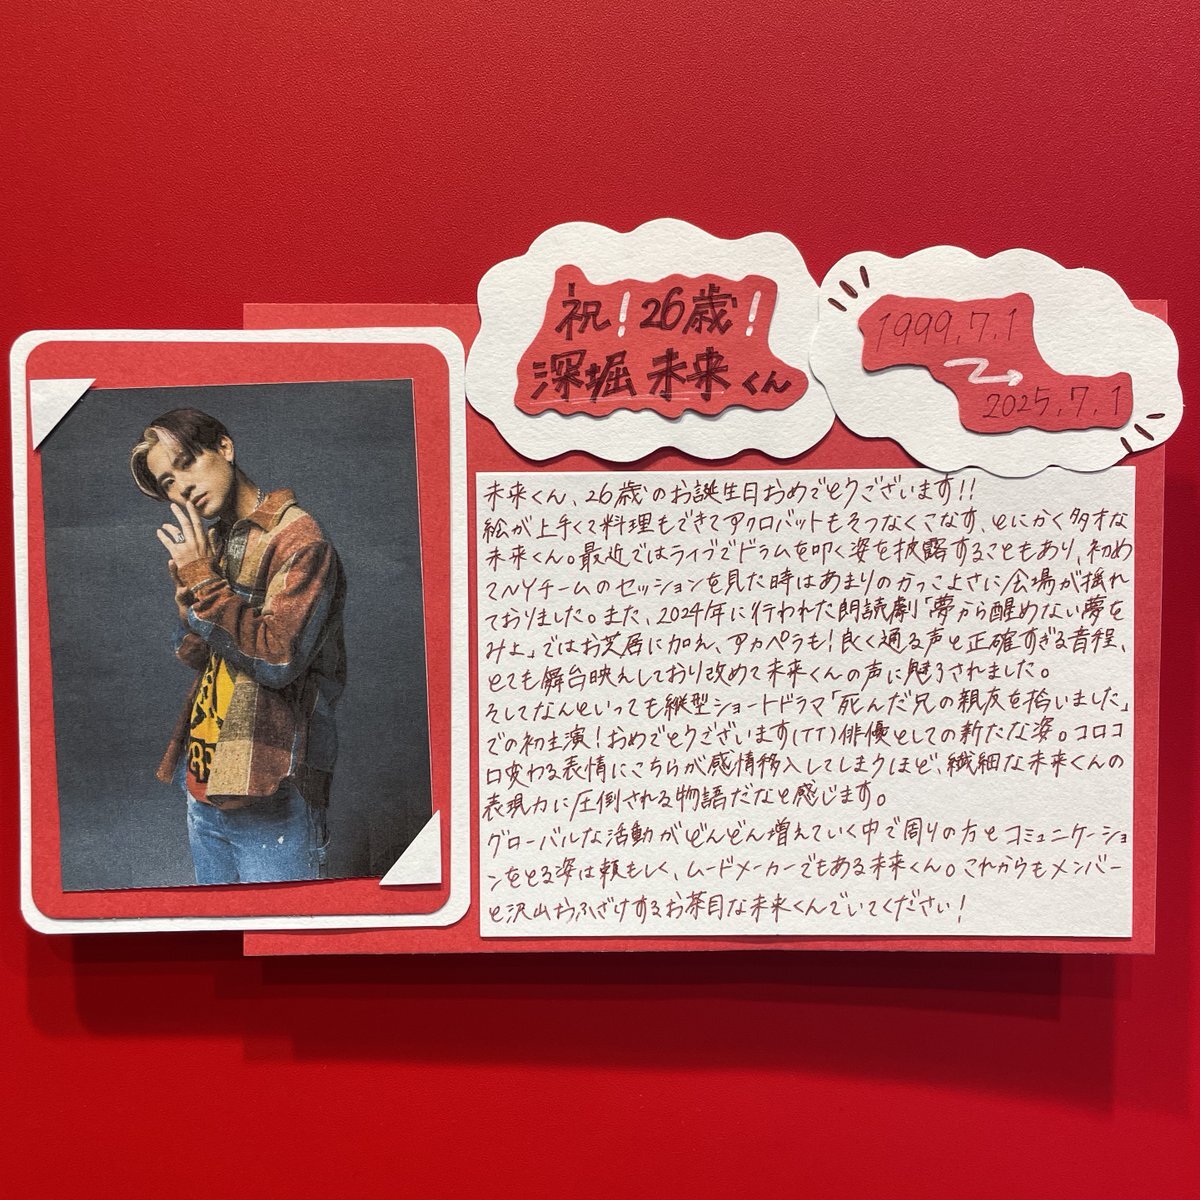 祝!26歳!
深堀 未来くん
1999.7.1
2025.7.1
未来くん、26歳のお誕生日おめでとうございます!!
絵が上手くて料理もできてアクロバットもそつなくこなす、とにかく多才な
未来くん。最近ではライブでドラムを叩く姿を披露することもあり、初め
てNYチームのセッションを見た時はあまりのかっこよさに会場が揺れ
ておりました。また、2024年に行われた朗読劇「夢から醒めない夢を
みよ」ではお芝居に加え、アカペラも!良く通る声と正確すぎる音程、
とても舞台映えしており改めて未来くんの声に魅了されました。
そしてなんといっても縦型ショートドラマ「死んだ兄の親友を拾いました」
での初主演!おめでとうございます(TT)俳優としての新たな姿。コロコ
ロ変わる表情にこちらが感情移入してしまうほど、繊細な未来くんの
表現力に圧倒される物語だなと感じます。
グローバルな活動がどんどん増えていく中で周りの方とコミュニケーショ
ンをとる姿は頼もしく、ムードメーカーでもある未来くん。これからもメンバー
と沢山おふざけするお茶目な未来くんでいてください!